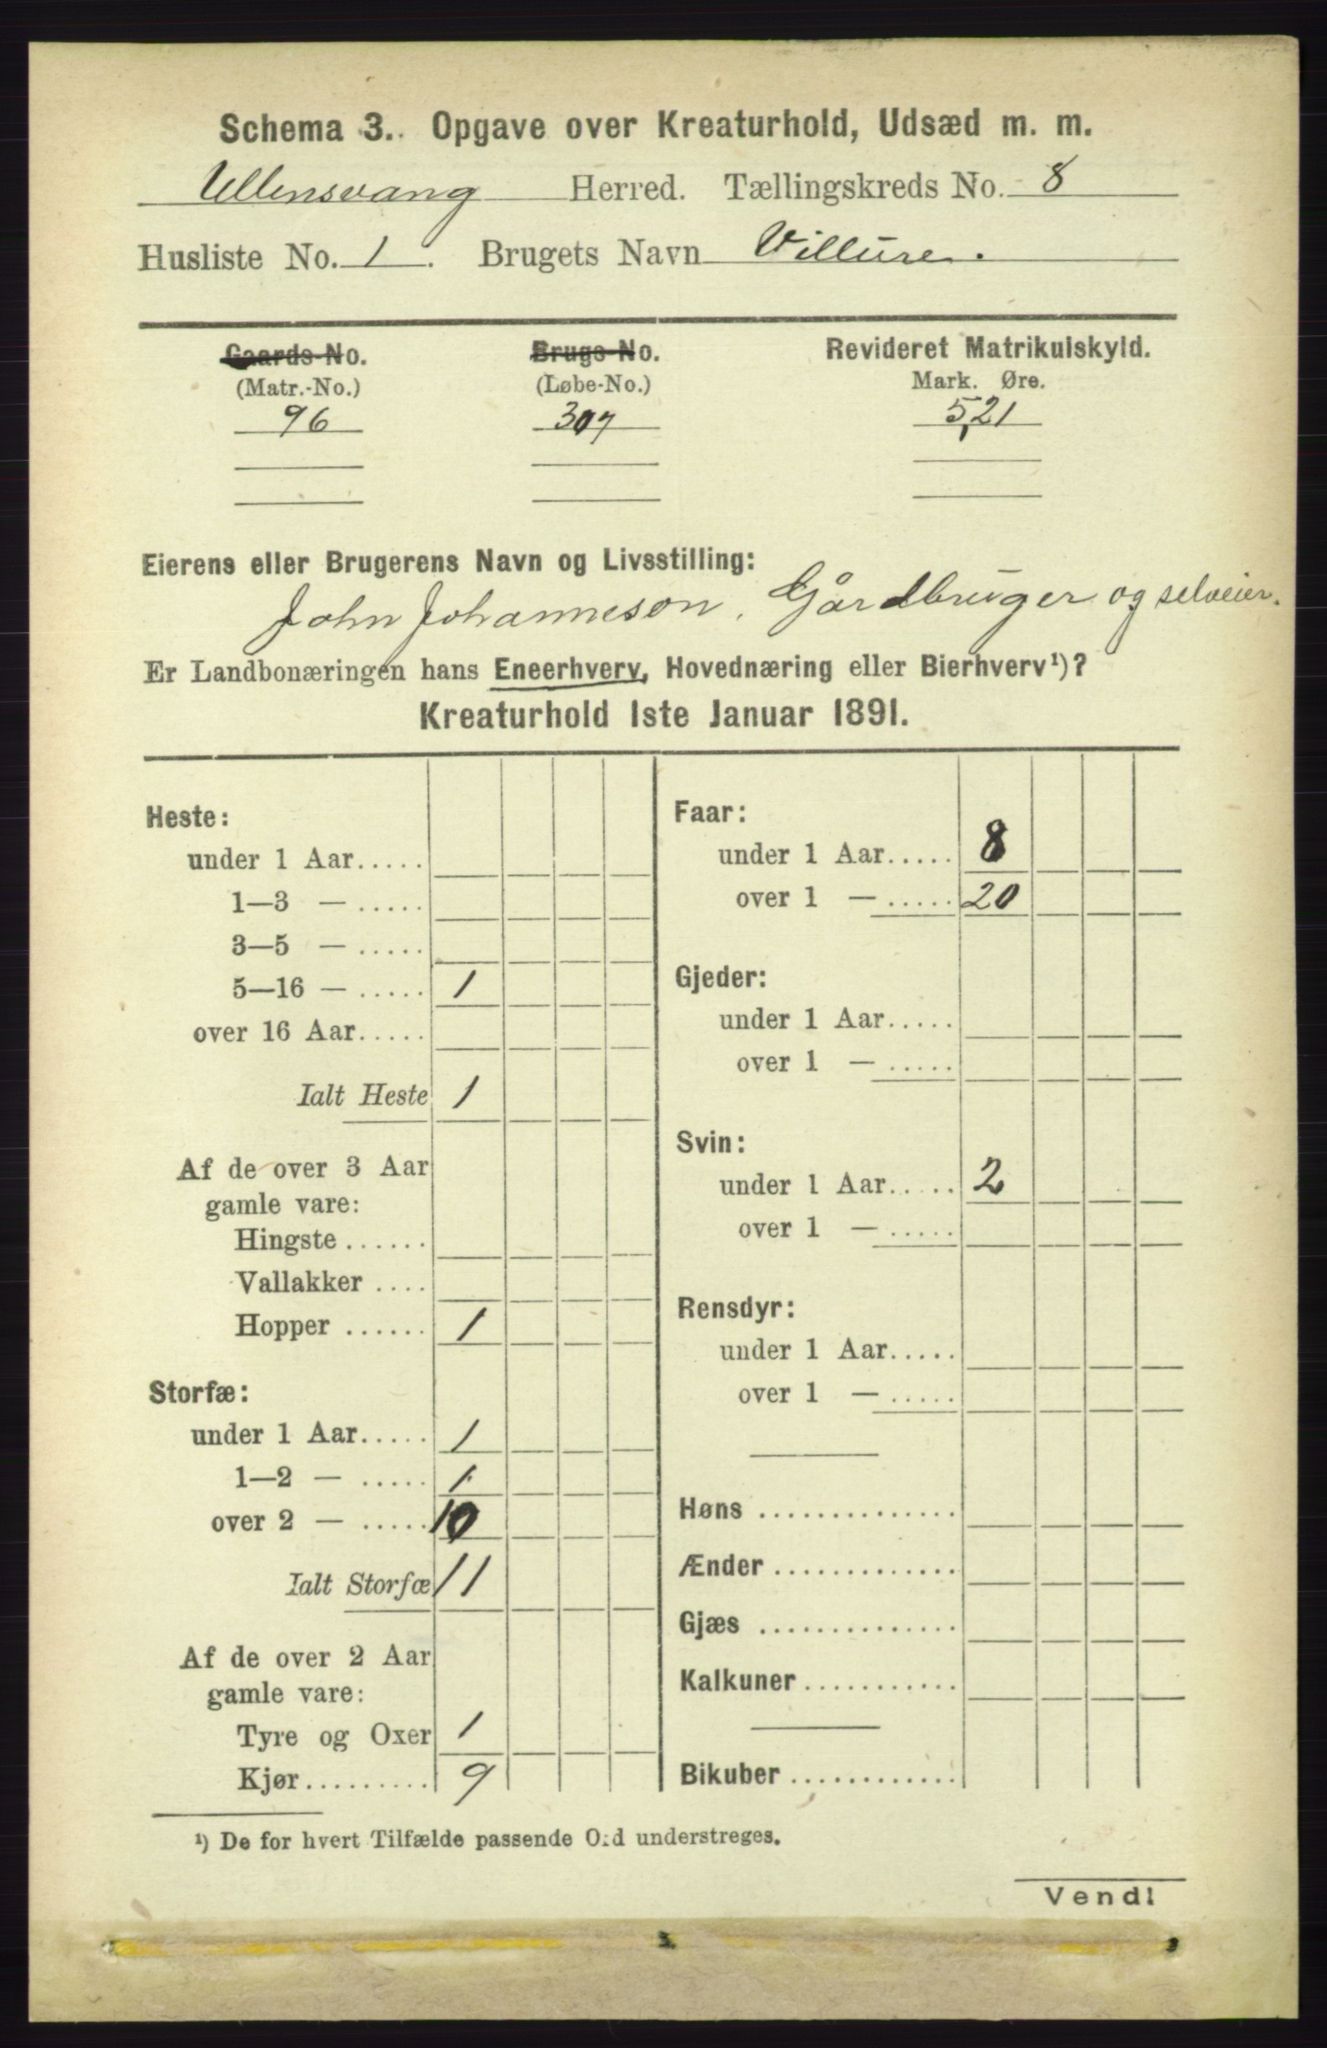 Schema 3. Opgave over Kreaturhold, Udsæd m. m.
Ullensvang Herred. Tællingskreds No. 8
Husliste No. 1. Brugets Navn Villure.
Gaards-No. Brugs-No. Revideret Matrikulskyld.
(Matr.-No.) (Løbe-No.) Mark. Øre.
96 307 5,21
Eierens eller Brugerens Navn og Livsstilling:
John Johanneson, Gårdbruger og selveier.
Er Landbonæringen hans Eneerhverv, Hovednæring eller Bierhverv¹)?
Kreaturhold 1ste Januar 1891.
Heste:
under 1 Aar.....
1—3 — .....
3—5 — .....
5—16 — ..... 1
over 16 Aar.....
Ialt Heste 1
Af de over 3 Aar
gamle vare:
Hingste ......
Vallakker ....
Hopper ...... 1
Storfæ:
under 1 Aar..... 1
1—2 — ..... 1
over 2 — ..... 10
Ialt Storfæ 11
Af de over 2 Aar
gamle vare:
Tyre og Oxer 1
Kjør......... 9
Faar:
under 1 Aar..... 8
over 1 — ..... 20
Gjeder:
under 1 Aar.....
over 1 — .....
Svin:
under 1 Aar..... 2
over 1 — .....
Rensdyr:
under 1 Aar.....
over 1 — .....
Høns ..............
Ænder .............
Gjæs ..............
Kalkuner ...........
Bikuber ............
¹) De for hvert Tilfælde passende O.d understreges.
Vend!